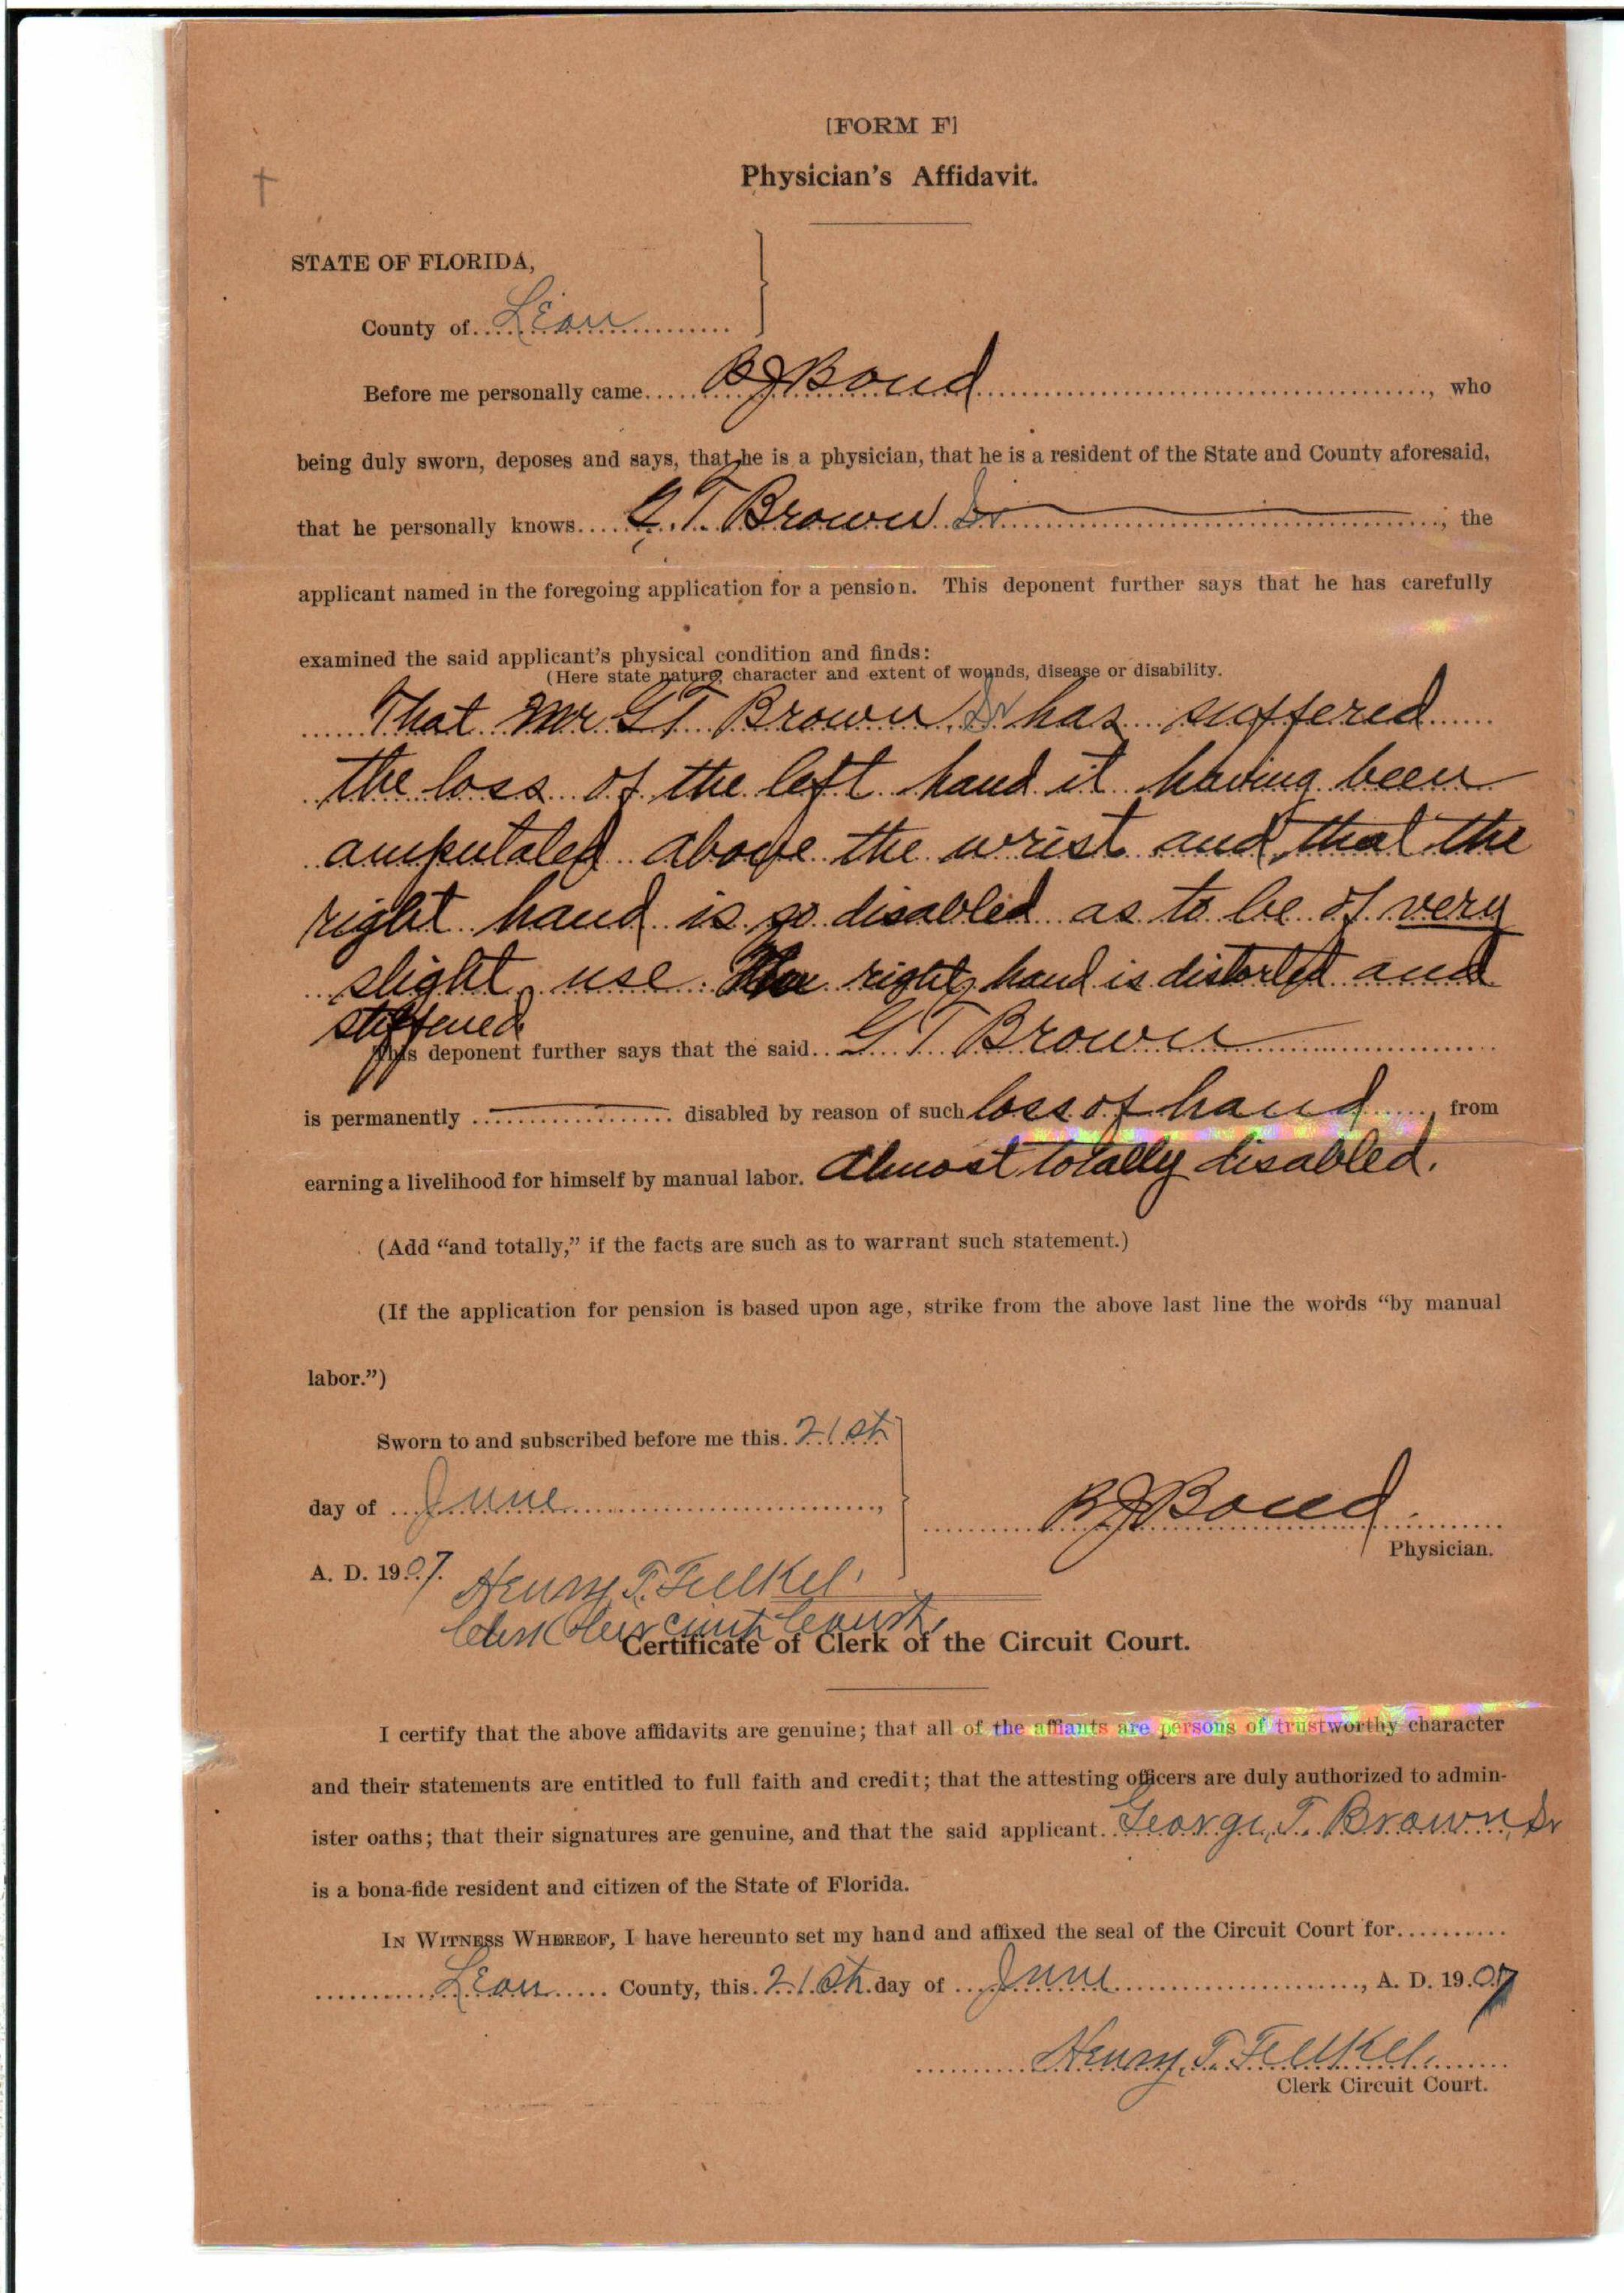 [FORM F]
Physician's Affidavit.
STATE OF FLORIDA,
County of Leon
Before me personally came B J Bond, who
being duly sworn, deposes and says, that he is a physician, that he is a resident of the State and County aforesaid,
that he personally knows G. T. Brown Sr; the
applicant named in the foregoing application for a pension. This deponent further says that he has carefully
examined the said applicant's physical condition and finds:
(Here state nature, character and extent of wounds, disease or disability.
That Mr G T Brown Sr has suffered
the loss of the left hand it having been
amputated above the wrist and that the
right hand is so disabled as to be of very
slight use. The right hand is distorted and
stiffened.
This deponent further says that the said G T Brown
is permanently disabled by reason of such loss of hand, from
earning a livelihood for himself by manual labor. Almost totally disabled.
(Add "and totally," if the facts are such as to warrant such statement.)
(If the application for pension is based upon age, strike from the above last line the words "by manual
labor.")
Sworn to and subscribed before me this 21st
day of June,
B J Bond
Physician.
A. D. 1907. Henry T. Felkel.
Clerk Circuit Court,
Certificate of Clerk of the Circuit Court.
I certify that the above affidavits are genuine; that all of the affiants are persons of trustworthy character
and their statements are entitled to full faith and credit; that the attesting officers are duly authorized to admin-
ister oaths; that their signatures are genuine, and that the said applicant George T. Brown, Sr
is a bona-fide resident and citizen of the State of Florida.
IN WITNESS WHEREOF, I have hereunto set my hand and affixed the seal of the Circuit Court for
Leon County, this 21st day of June, A. D. 1907
Henry T. Felkel.
Clerk Circuit Court.